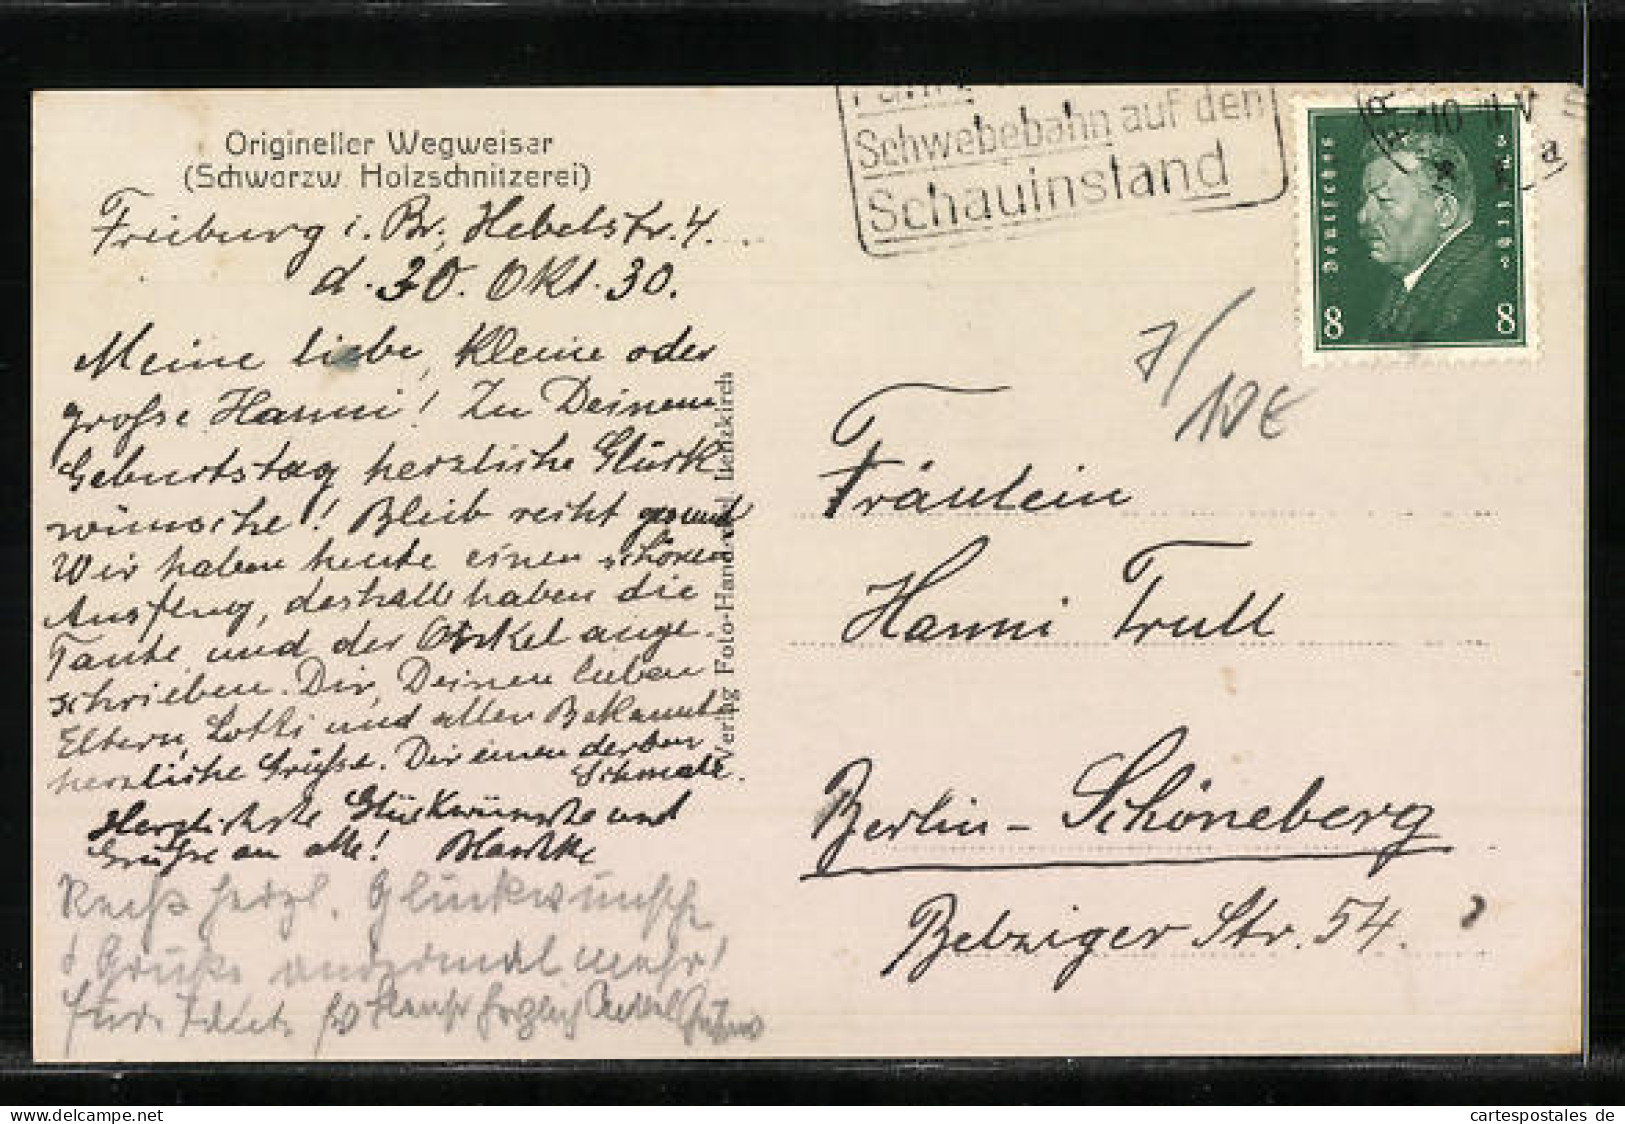 Origineller Wegweiser
(Schwarzw Holzschnitzerei)
Freiburg i. Br., Hebelstr. 4.
d. 30. Okt. 30.
Meine liebe, kleine oder
große Hanni! Zu Deinem
Geburtstag herzliche Glück
wünsche! Bleib recht gesund
Wir haben heute einen schönen
Ausflug, deshalb haben die
Tante und der Onkel ange-
schrieben. Dir, Deinen lieben
Eltern, Lotti und allen Bekannten
herzliche Grüsse. Dir einen derben
Schmatz.
Herzlichste Glückwünsche und
Grüsse an alle!
herzl. Glückwünsche
Verlag Foto-Handel Lenzkirch
Fahrt
Schwebebahn auf den
Schauinsland
10
V
a
Deutsches Reich
8 8
7/
10€
Fräulein
Hanni Trull
Berlin-Schöneberg
Belziger Str. 54.
cartespostales de